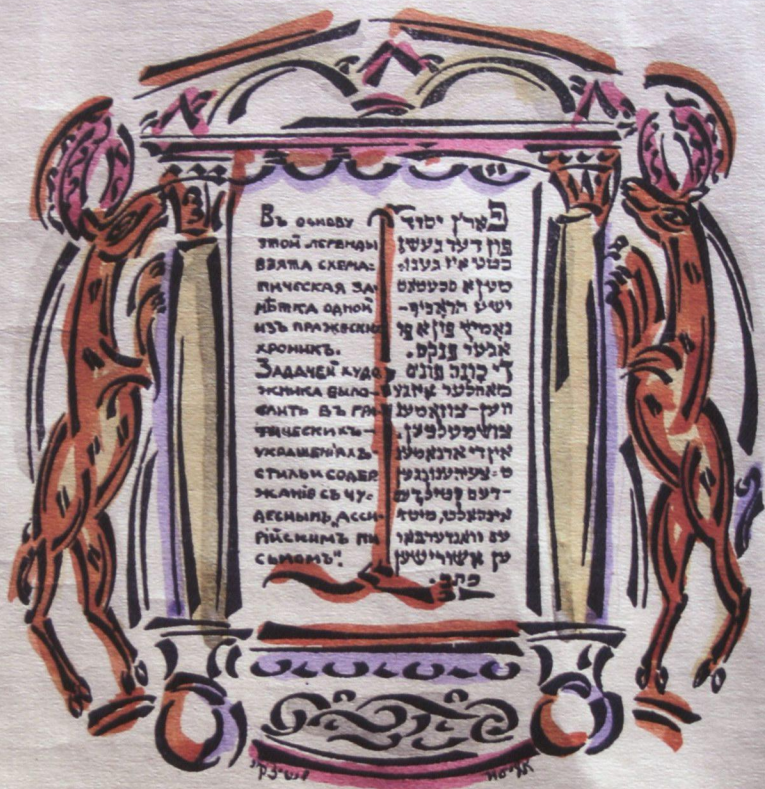 Въ основу
этой легенды
взята схема-
тическая за
мѣтка одной
изъ пражски
хроникъ.
Задачей худо
жника было-
слить въ гра
фическихъ-
украшенiяхъ-
стиль и содер
жанiе съ чу-
деснымъ „Асси
рiйскимъ пи
сьмомъ".
פארץ יסוד
פון דער געשי
כטע איז גענו-
מען א סכעמאט
ישע
פון א פר
אגער פנקס.
די כונה פונם
מאהלער איז גע
ווען-צוזאמען
צושמעלצען
אין די ארנאמענ
דעם סטיל
אינהאלט, מיט ד
עם וואונדערבאר
ען אשורישען
כתב.